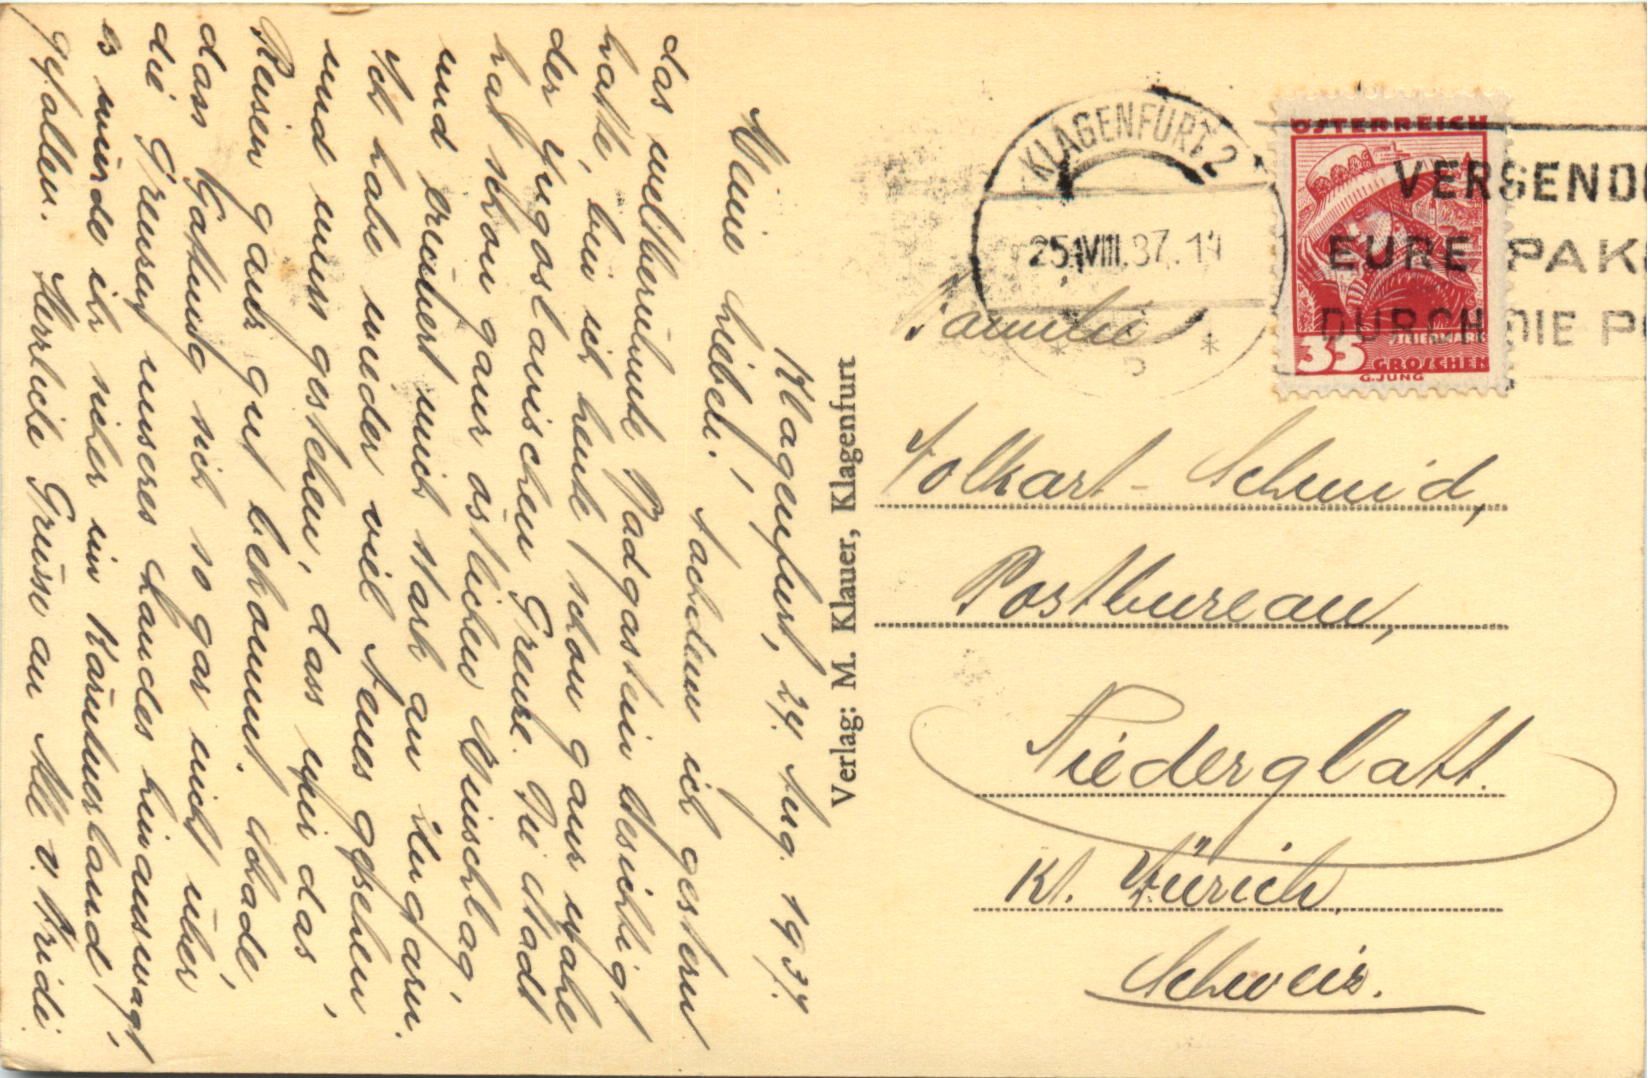 Klagenfurt, 24. Aug. 1937.
Meine Lieben!
Nachdem ich gestern
das weltberühmte Badgastein besichtigt
hatte, bin ich heute schon ganz nahe
der jugoslavischen Grenze. Die Stadt
hat schon ganz östlichen Einschlag,
und erinnert mich stark an Ungarn.
Ich habe wieder viel Neues gesehen
und muss gestehen, dass mir das
Reisen ganz gut bekommt. Schade,
dass Gattung sich so gar nicht über
die Grenzen unseres Landes hinauswagt,
es würde ihr sicher im Kärntnerland
gefallen. Herzliche Grüsse an Alle v. Fridi.
Verlag: M. Klauer, Klagenfurt
KLAGENFURT 2
25.VIII.37.19
ÖSTERREICH
35
STEIERMARK
GROSCHEN
G.JUNG
VERSENDE
EURE PAK
DURCH DIE P
Familie
Volkart-Schmid,
Postbureau,
Niederglatt.
Kt. Zürich.
Schweiz.